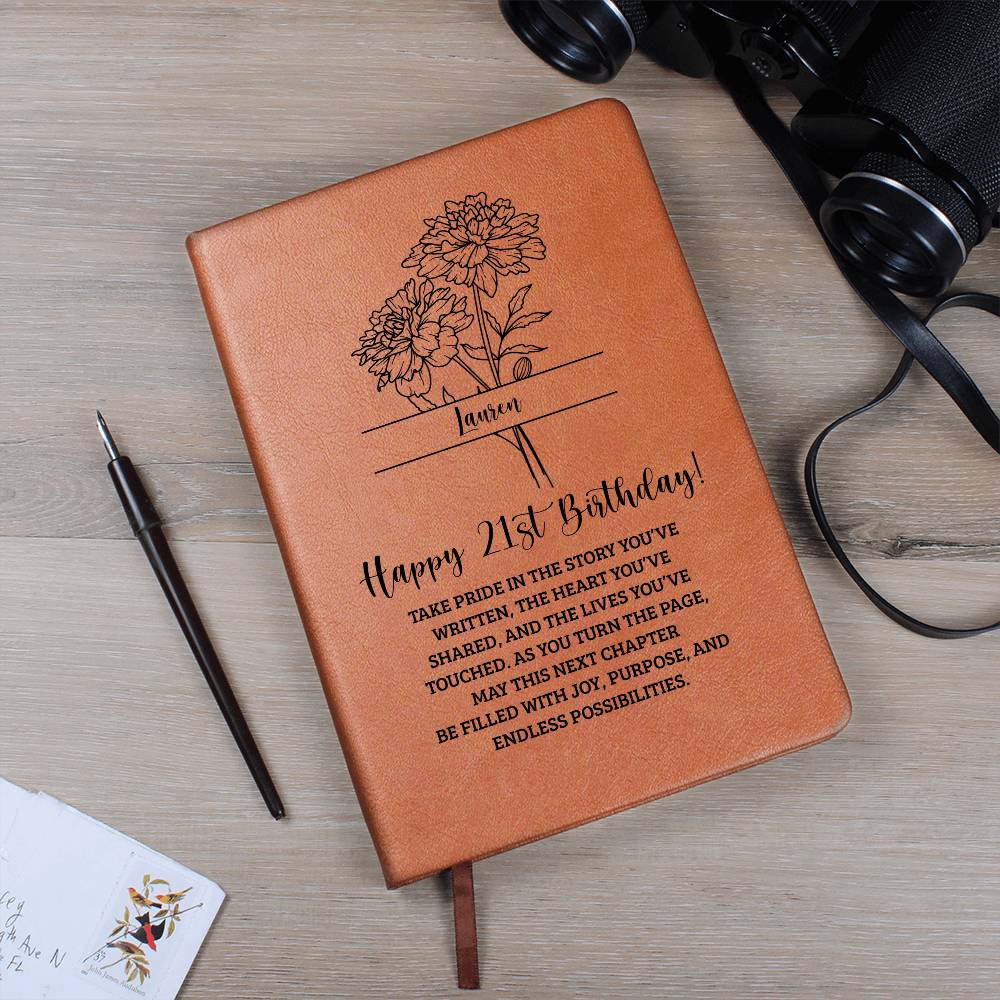 Lauren
Happy 21st Birthday!
TAKE PRIDE IN THE STORY YOU’VE
WRITTEN, THE HEART YOU’VE
SHARED, AND THE LIVES YOU’VE
TOUCHED. AS YOU TURN THE PAGE,
MAY THIS NEXT CHAPTER
BE FILLED WITH JOY, PURPOSE, AND
ENDLESS POSSIBILITIES.
Ave N
FL
37
John James Audubon